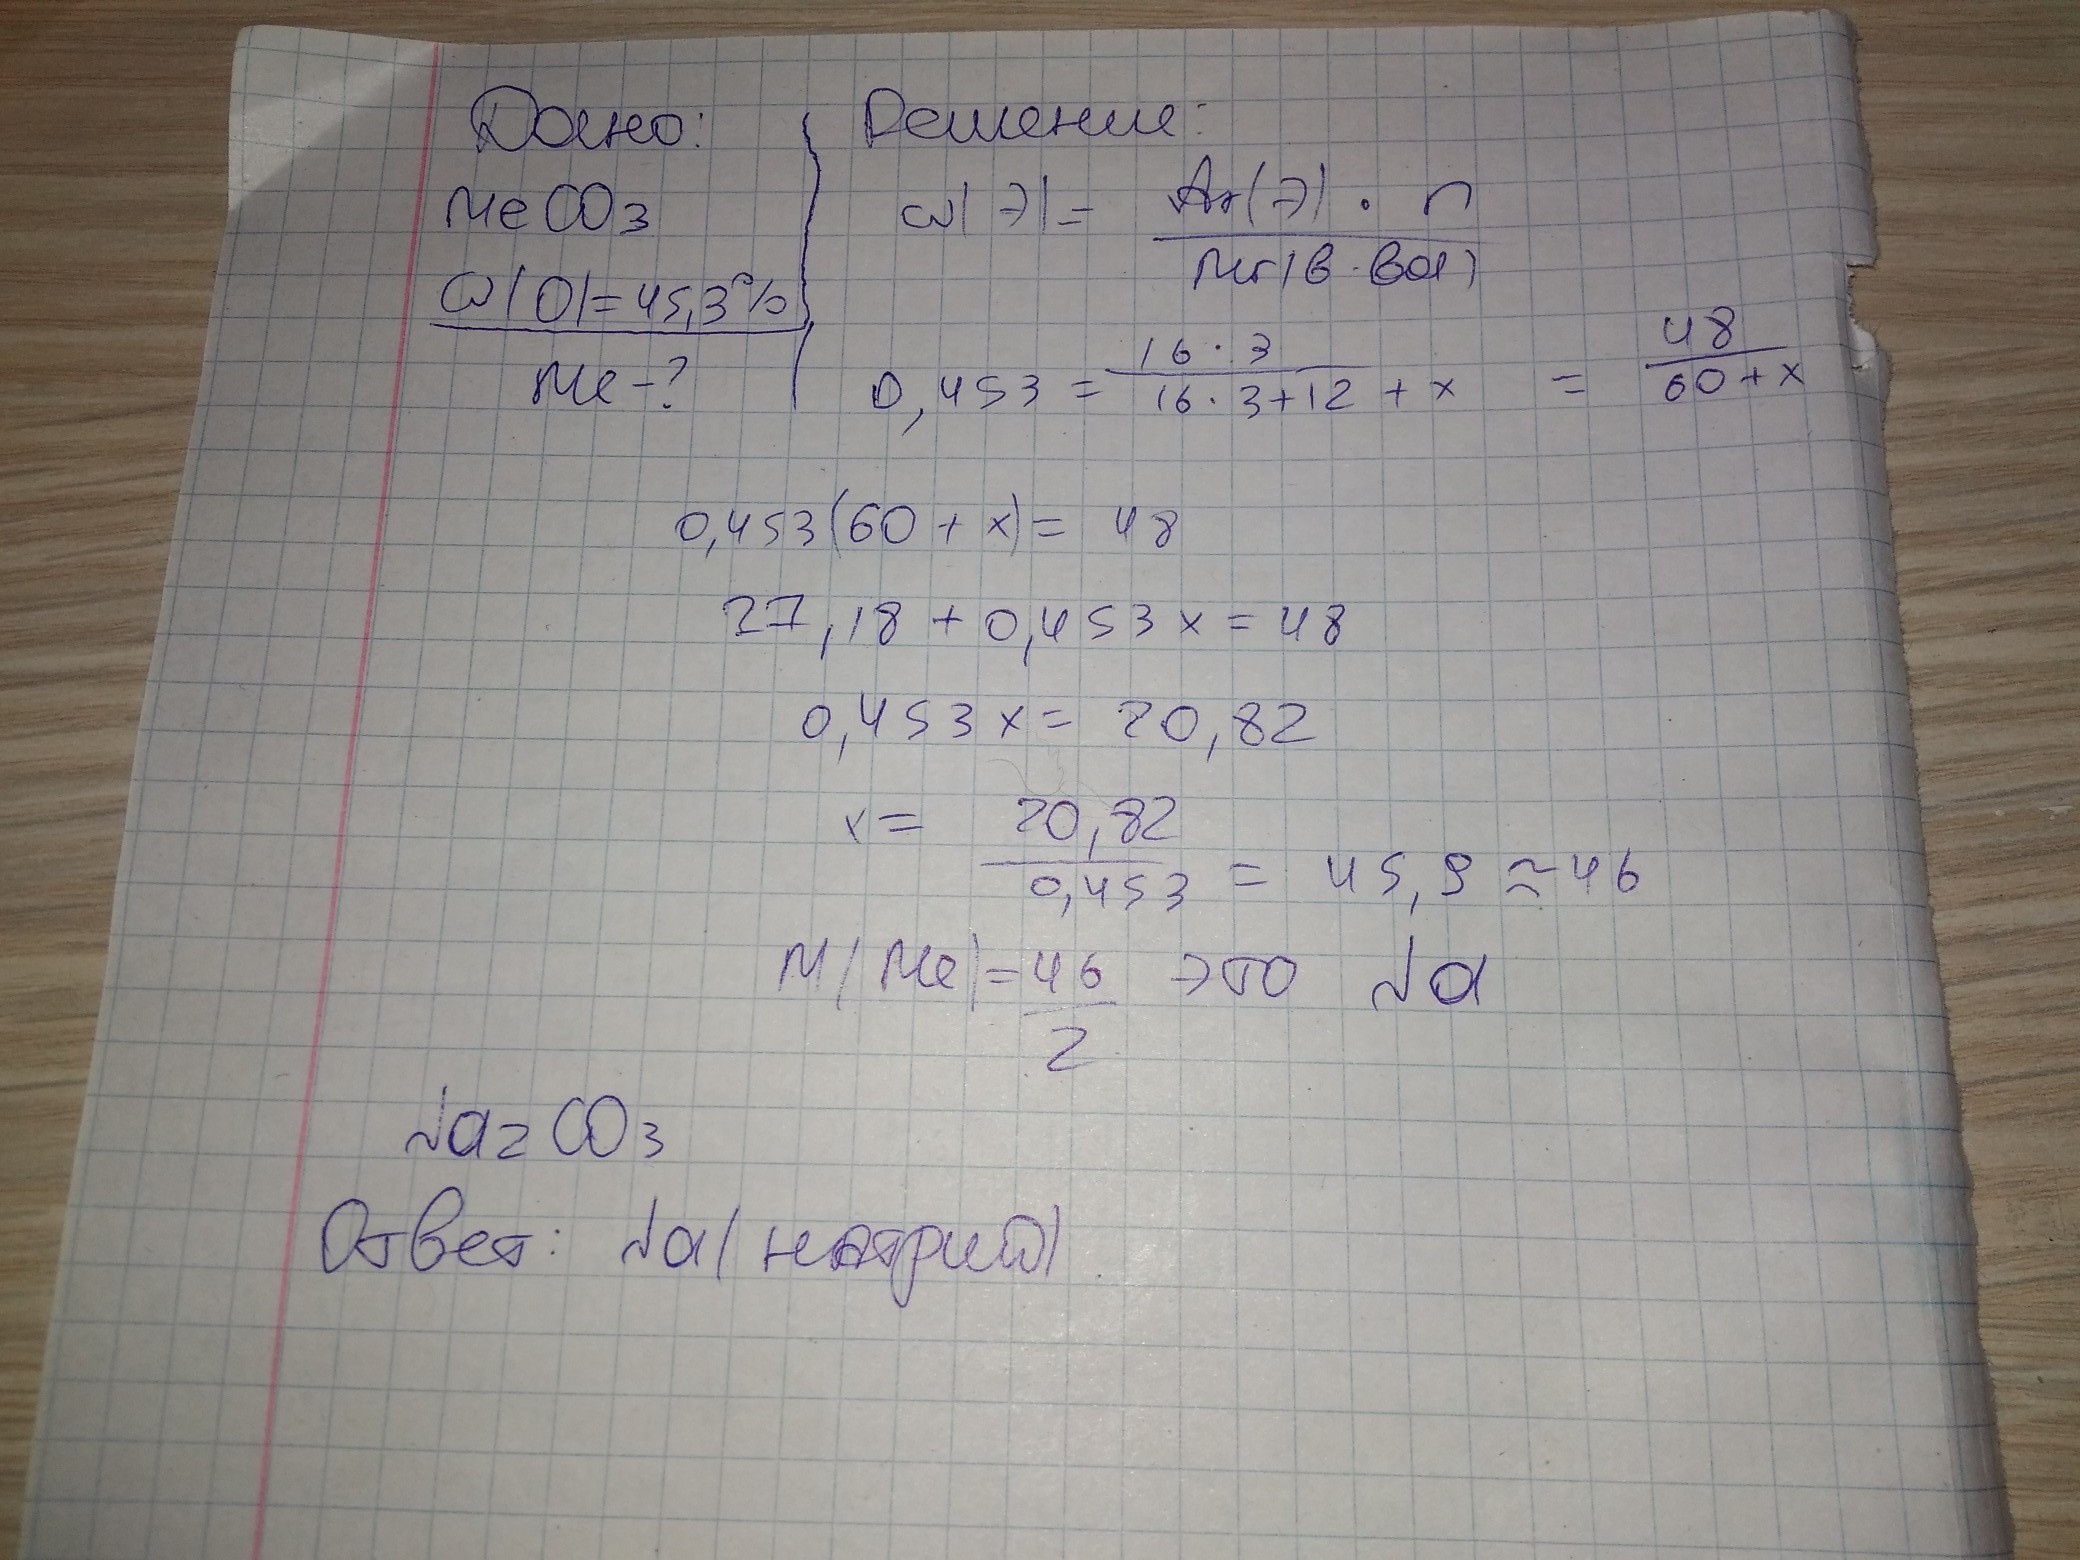 Дано:
MeCO3
ω(O)=45,3%
Me-?
Решение:
ω(Э)= Ar(Э) · n / Mr(в-ва)
0,453 = 16·3 / 16·3+12+x = 48 / 60+x
0,453(60+x)= 48
27,18+0,453x=48
0,453x= 20,82
x= 20,82 / 0,453 = 45,9 ≈46
M(Me)= 46 / 2 это Na
Na2CO3
Ответ: Na(натрий)